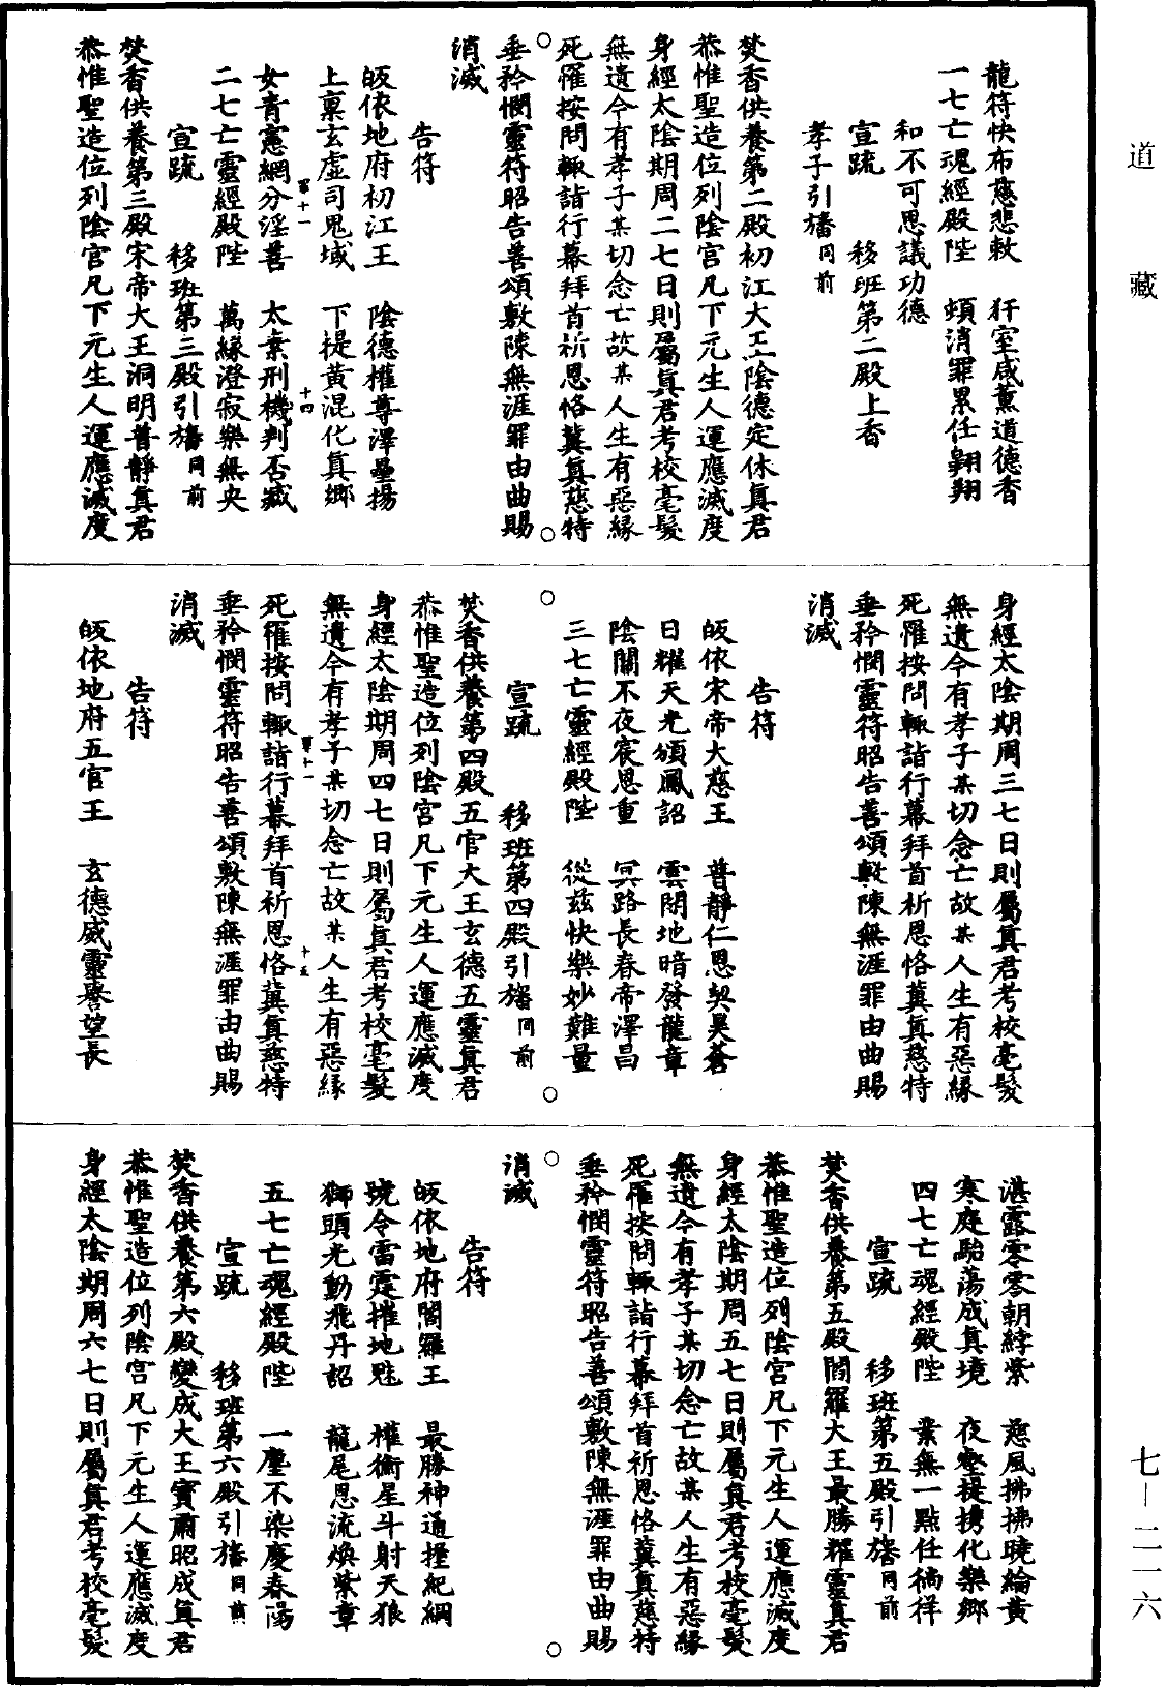 道藏
龍符快布慈悲敕　犴室咸薰道德香
一七亡魂經殿陛　頓消罪累任翱翔
和不可思議功德
宣疏　移班第二殿上香
孝子引旛同前
焚香供養第二殿初江大王陰德定休真君
恭惟聖造位列陰宮凡下元生人運應滅度
身經太陰期周二七日則屬真君考校毫髮
無遺今有孝子某切念亡故某人生有惡緣
死罹按問輙詣行幕拜首祈恩恪冀真慈特
垂矜憫靈符昭告善頌敷陳無涯罪由曲賜
消滅
告符
皈依地府初江王　陰德權尊澤量揚
上稟玄虛司鬼域　下禔黃混化真鄉
女青憲網分淫善　太素刑機判否臧
二七亡靈經殿陛　萬緣澄寂樂無央
宣疏　移班第三殿引旛同前
焚香供養第三殿宋帝大王洞明普靜真君
恭惟聖造位列陰宮凡下元生人運應滅度
身經太陰期周三七日則屬真君考校毫髮
無遺今有孝子某切念亡故某人生有惡緣
死罹按問輙詣行幕拜首祈恩恪冀真慈特
垂矜憫靈符昭告善頌敷陳無涯罪由曲賜
消滅
告符
皈依宋帝大慈王　普靜仁恩契昊蒼
日耀天光頒鳳詔　雲開地暗發龍章
陰關不夜宸恩重　冥路長春帝澤昌
三七亡靈經殿陛　從茲快樂妙難量
宣疏　移班第四殿引旛同前
焚香供養第四殿五官大王玄德五靈真君
恭惟聖造位列陰宮凡下元生人運應滅度
身經太陰期周四七日則屬真君考校毫髮
無遺今有孝子某切念亡故某人生有惡緣
死罹按問輙詣行幕拜首祈恩恪冀真慈特
垂矜憫靈符昭告善頌敷陳無涯罪由曲賜
消滅
告符
皈依地府五官王　玄德威靈譽望長
湛露零零朝綍紫　慈風拂拂曉綸黃
寒庭駘蕩成真境　夜壑提攜化樂鄉
四七亡魂經殿陛　業無一點任徜徉
宣疏　移班第五殿引旛同前
焚香供養第五殿閻羅大王最勝耀靈真君
恭惟聖造位列陰宮凡下元生人運應滅度
身經太陰期周五七日則屬真君考校毫髮
無遺今有孝子某切念亡故某人生有惡緣
死罹按問輙詣行幕拜首祈恩恪冀真慈特
垂矜憫靈符昭告善頌敷陳無涯罪由曲賜
消滅
告符
皈依地府閻羅王　最勝神通握紀綱
號令雷霆摧地魁　權衡星斗射天狼
獅頭光動飛丹詔　龍尾恩流煥紫章
五七亡魂經殿陛　一塵不染慶春陽
宣疏　移班第六殿引旛同前
焚香供養第六殿變成大王寶肅昭成真君
恭惟聖造位列陰宮凡下元生人運應滅度
身經太陰期周六七日則屬真君考校毫髮
七－二一六